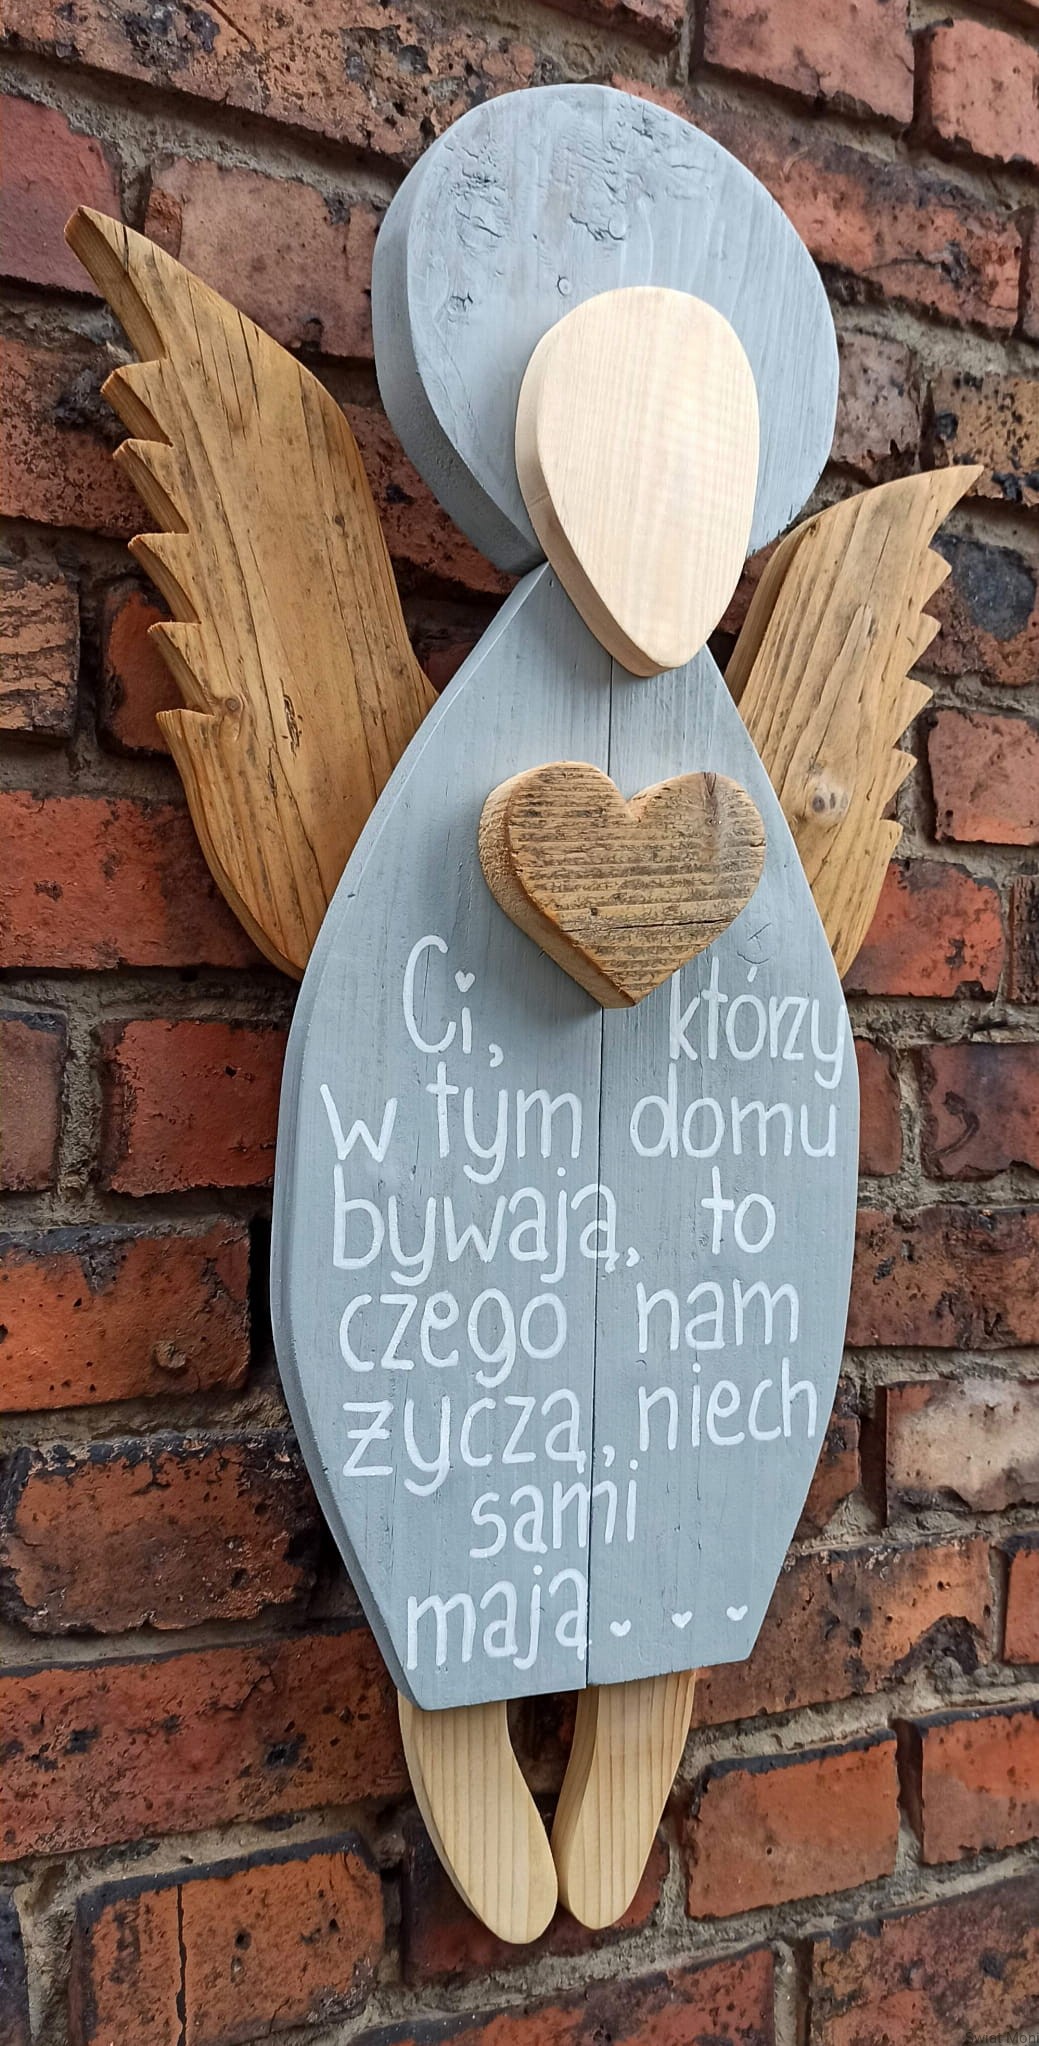 Ci, którzy
w tym domu
bywają, to
czego nam
życzą, niech
sami
mają...